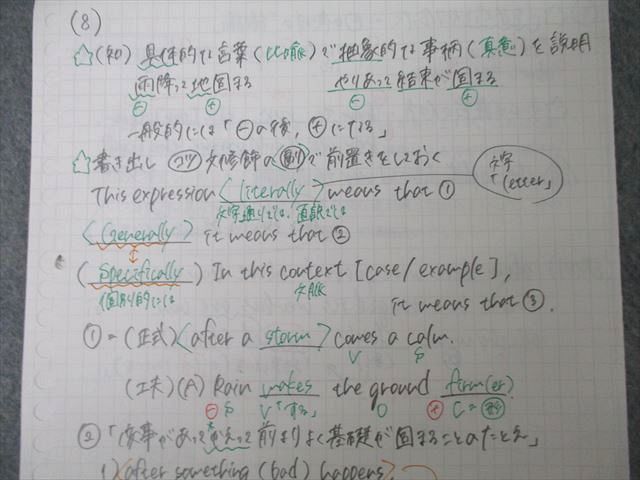 (8)
☆(知) 具体的な言葉(比喩)で抽象的な事柄(真意)を説明
雨降って地固まる やりあって結束が固まる
⊖ ⊕ ⊖ ⊕
一般的には「⊖の後、⊕になる」
☆書き出し コツ 文修飾の副で前置きをしておく
文字「letter」
This expression <literally> means that ①
文字通りでは、直訳では
<Generally> it means that ②
(Specifically) In this context [case/example],
(個別的には 文脈
it means that ③.
①=(正式)<after a storm> comes a calm.
V S
(工夫)(A) Rain makes the ground firm(er).
⊖ S V「する」 O ⊕ C=形
②「事があってかえって前よりよく基礎が固まることのたとえ」
1)<after something (bad) happens>,